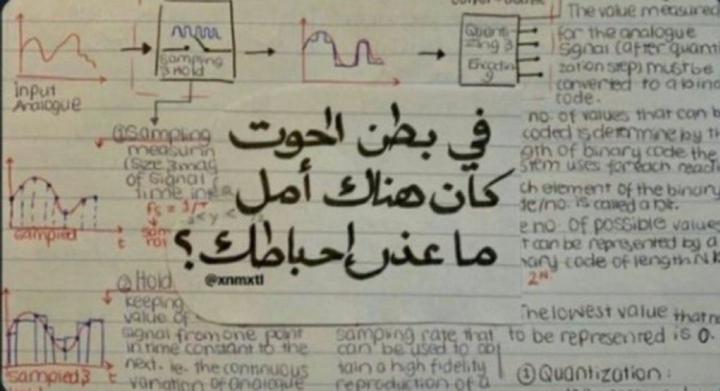 input
Analogue
Sampling
& Hold
Quanti
zing &
Encodin
g
The value measured
for the analogue
signal (after quant
ization step) must be
converted to a bina
code.
no. of values that can b
coded is determine by th
gth of binary code the
stem uses for each readi
ch element of the binary
de/no. is called a bit.
e no. of possible value
t can be represented by a
nary code of length N k
2ᴺ
The lowest value that n
to be represented is 0.
③ Quantization:
① Sampling
measurin
(size & mag
of signal
time inte
fs = 1/T
sampled
t
② Hold
keeping
value of
signal from one point
in time constant to the
next. ie. the continuous
variation of analogue
sampled &
t
sampling rate that
can be used to ob
tain a high fidelity
reproduction of a
في بطن الحوت
كان هناك أمل
ما عذر إحباطك؟
@xnmxtl